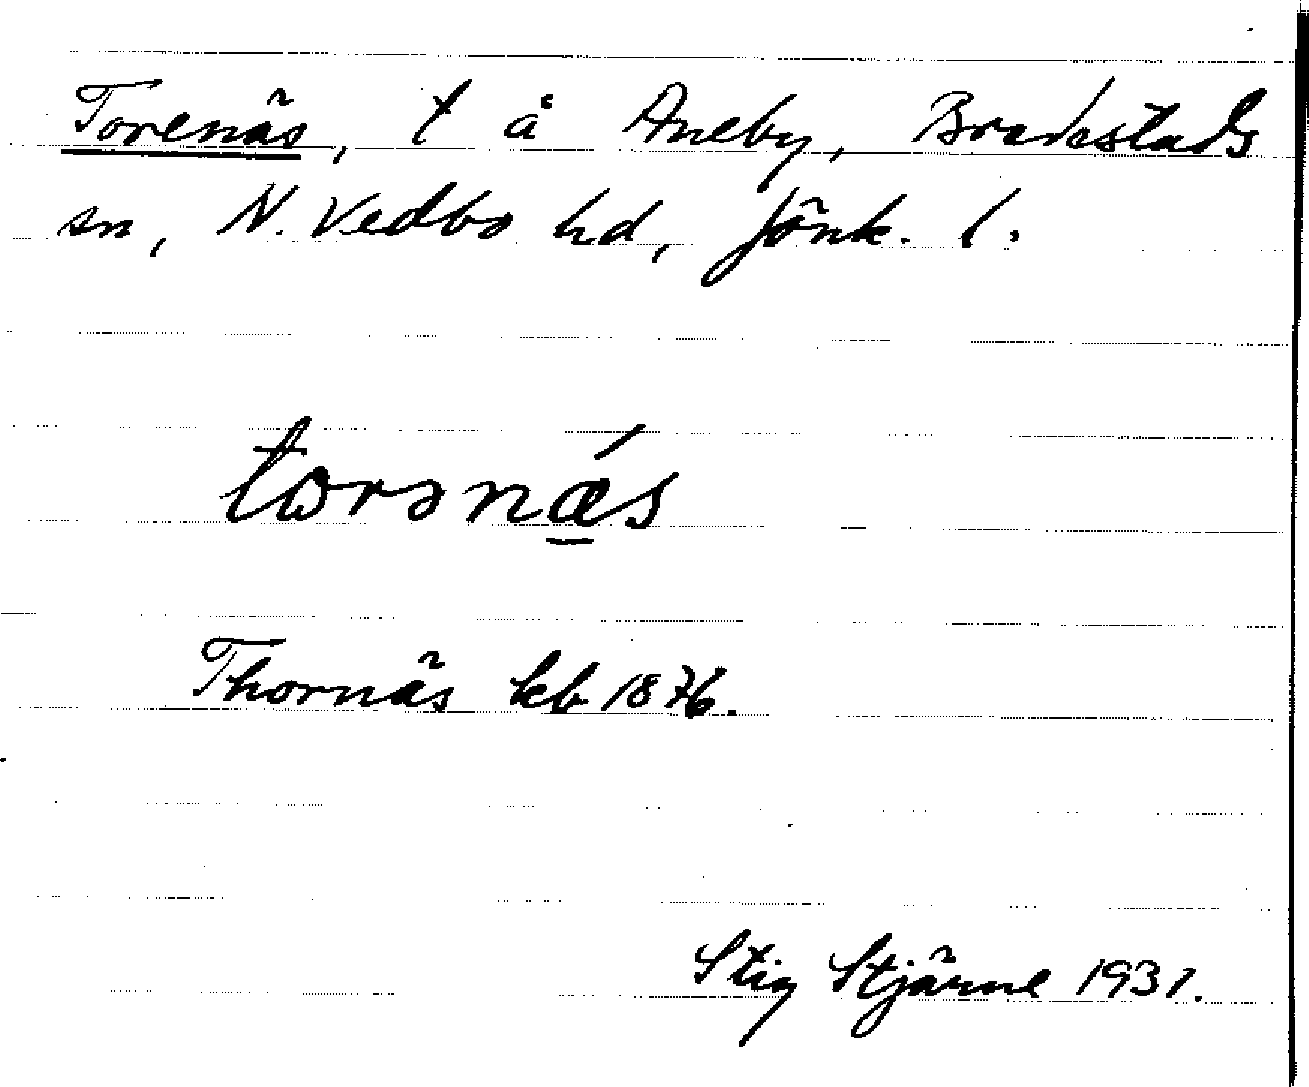 Torenäs, t å Aneby, Bredestads
sn, N. Vedbo hd, Jönk. l.
torənǽs
Thornäs kb 1876.
Stig Stjärne 1931.